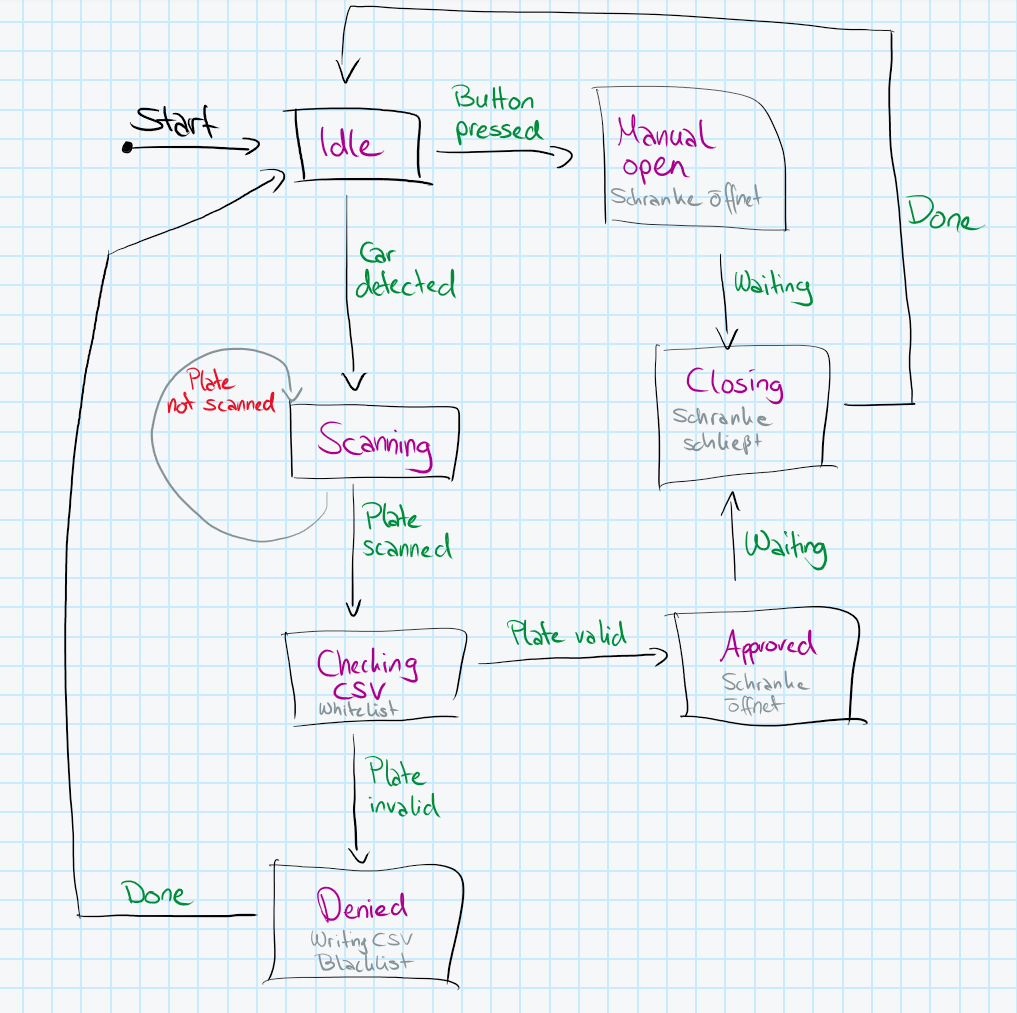 Start
Idle
Button
pressed
Manual
open
Schranke öffnet
Done
Car
detected
Waiting
Plate
not scanned
Closing
Schranke
schließt
Scanning
Plate
scanned
Waiting
Checking
CSV
Whitelist
Plate valid
Approved
Schranke
öffnet
Plate
invalid
Done
Denied
Writng CSV
Blacklist